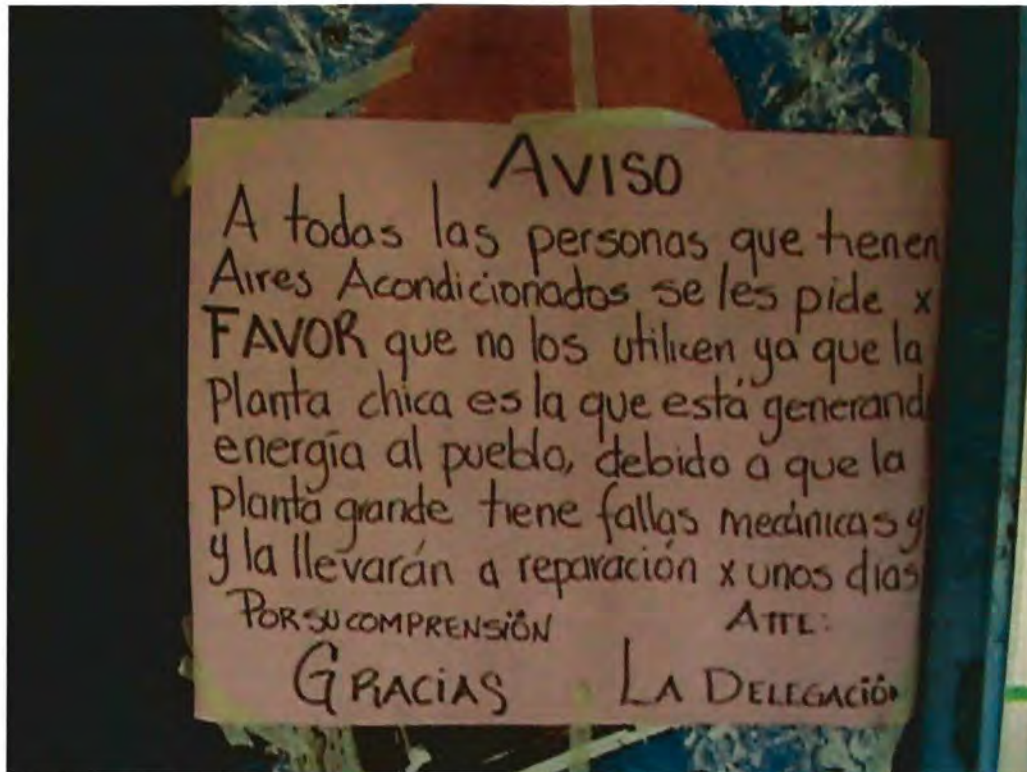 AVISO
A todas las personas que tienen
Aires Acondicionados se les pide x
FAVOR que no los utilicen ya que la
Planta chica es la que está generand
energía al pueblo, debido a que la
Planta grande tiene fallas mecánicas y
y la llevarán a reparación x unos dias
POR SU COMPRENSIÓN ATTE:
GRACIAS LA DELEGACIÓN